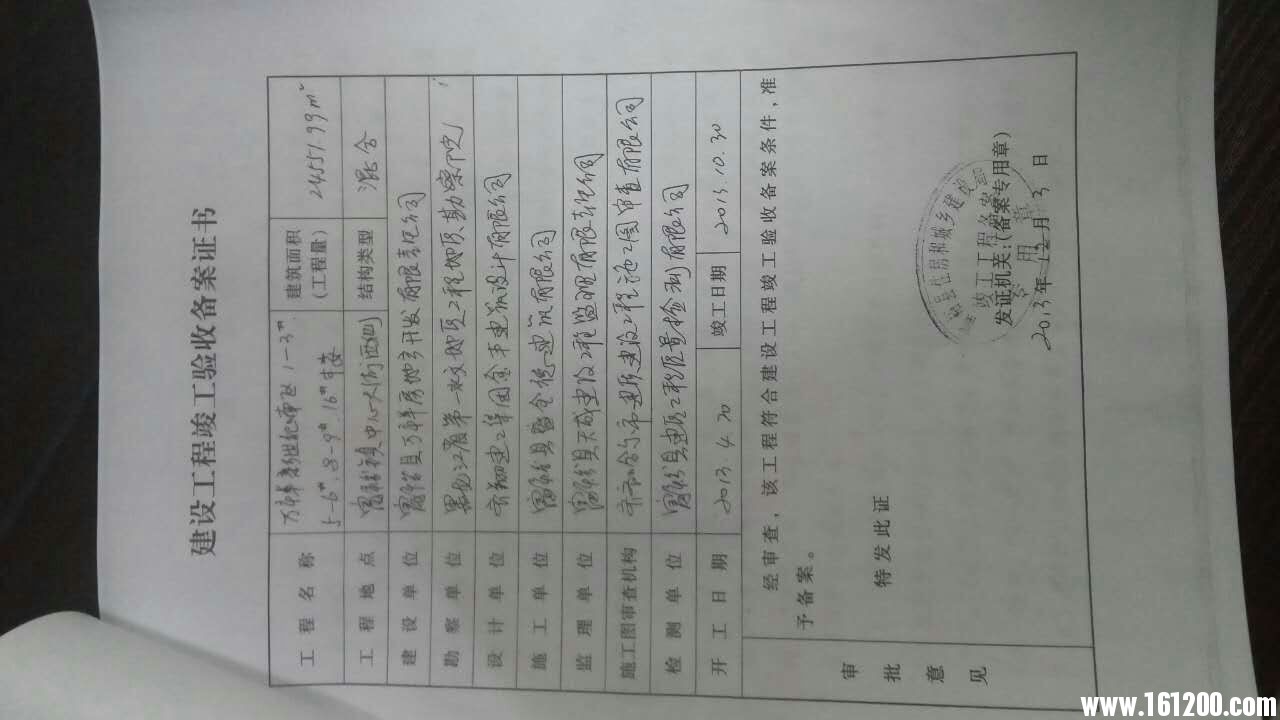 建设工程竣工验收备案证书
工程名称
1-3#
建筑面积
(工程量)
24557.99m²
5-6#.8-9#.16#楼
工程地点
富裕镇中心大街西侧
结构类型
混合
建设单位
富裕县万隆房地产开发有限责任公司
勘察单位
黑龙江省第一水文地质工程地质勘察院
设计单位
建筑设计有限公司
施工单位
富裕县鑫德建筑有限公司
监理单位
富裕县天成建设工程监理有限责任公司
施工图审查机构
齐齐哈尔市建设工程施工图审查有限公司
检测单位
富裕县建设工程质量检测有限公司
开工日期
2013.4.20
竣工日期
2013.10.30
审批意见
经审查,该工程符合建设工程竣工验收备案条件,准
予备案。
特发此证
住房和城乡建设
竣工工程备案
专用章
发证机关:(备案专用章)
2013年12月3日
www.161200.com